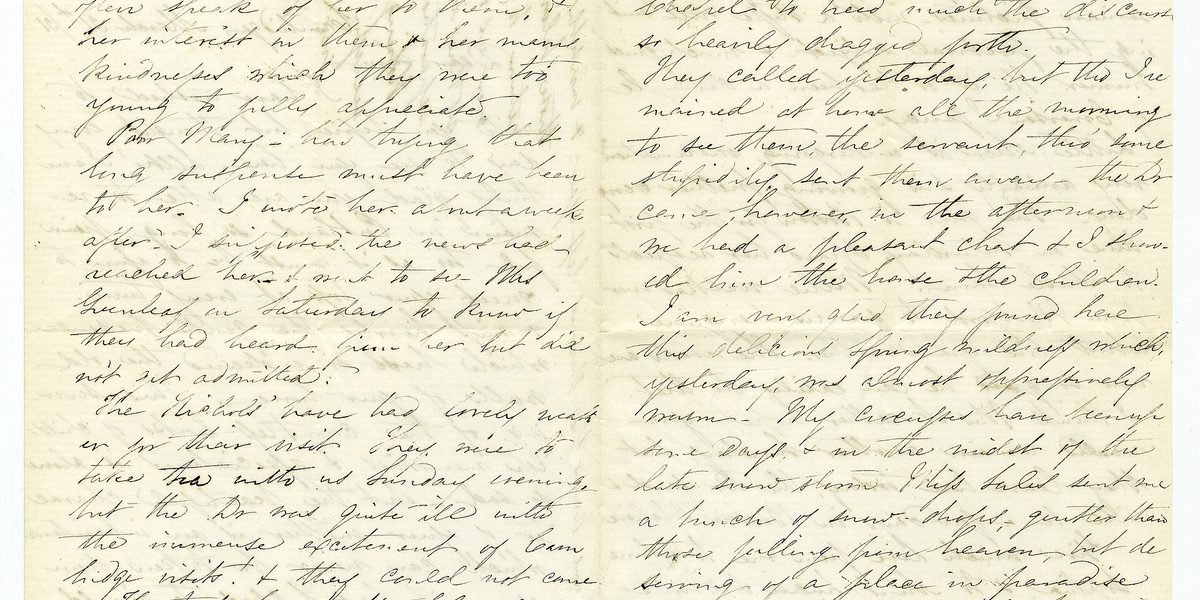 often speak of her to them, &
her interest in them & her many
kindnesses which they were too
young to fully appreciate.
Poor Mary - how trying that
long suspense must have been
to her. I wrote her about a week
after - I supposed the news had
reached her & went to see Mrs
Greenleaf on Saturday to know if
they had heard from her but did
not get admitted.
The Nichols' have had lovely weath
er for their visit. They were to
take tea with us Sunday evening,
but the Dr was quite ill with
the immense excitement of Cam
bridge visits! & they could not come
Chapel to heed much the discourse
so heavily dragged forth.
They called yesterday, but tho' I re
mained at home all the morning
to see them, the servant, thro' some
stupidity, sent them away - the Dr
came, however, in the afternoon &
we had a pleasant chat & I show-
ed him the house & the children.
I am very glad they found here
this delicious Spring mildness which,
yesterday, was almost oppressively
warm - My crocuses have been up
some days, & in the midst of the
late snow storm Miss Sales sent me
a bunch of snow-drops, gentler than
those falling from heaven, but de
serving of a place in paradise